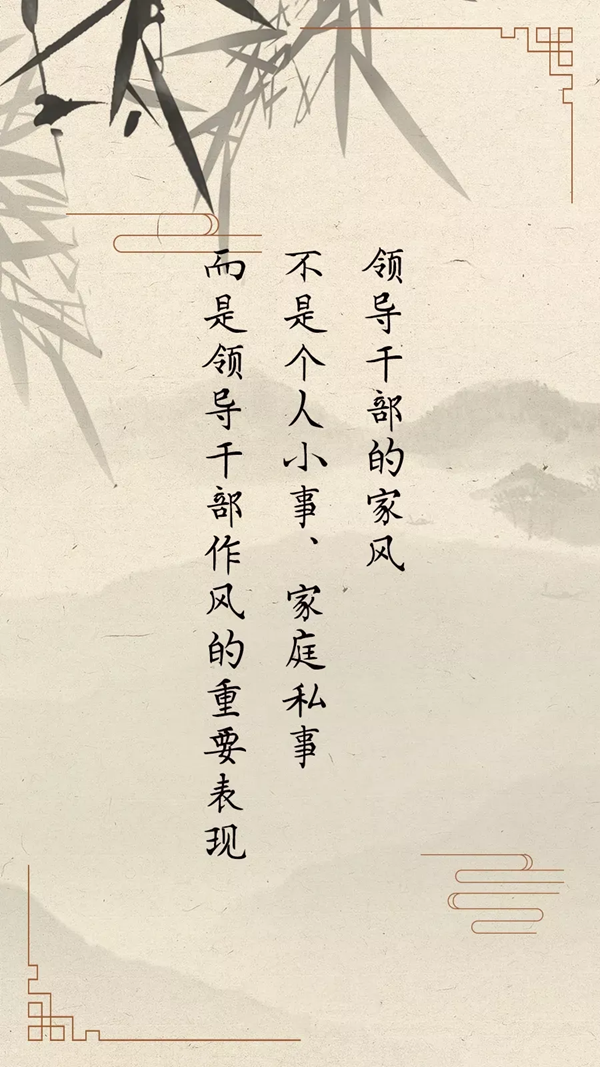 领导干部的家风
不是个人小事、家庭私事
而是领导干部作风的重要表现